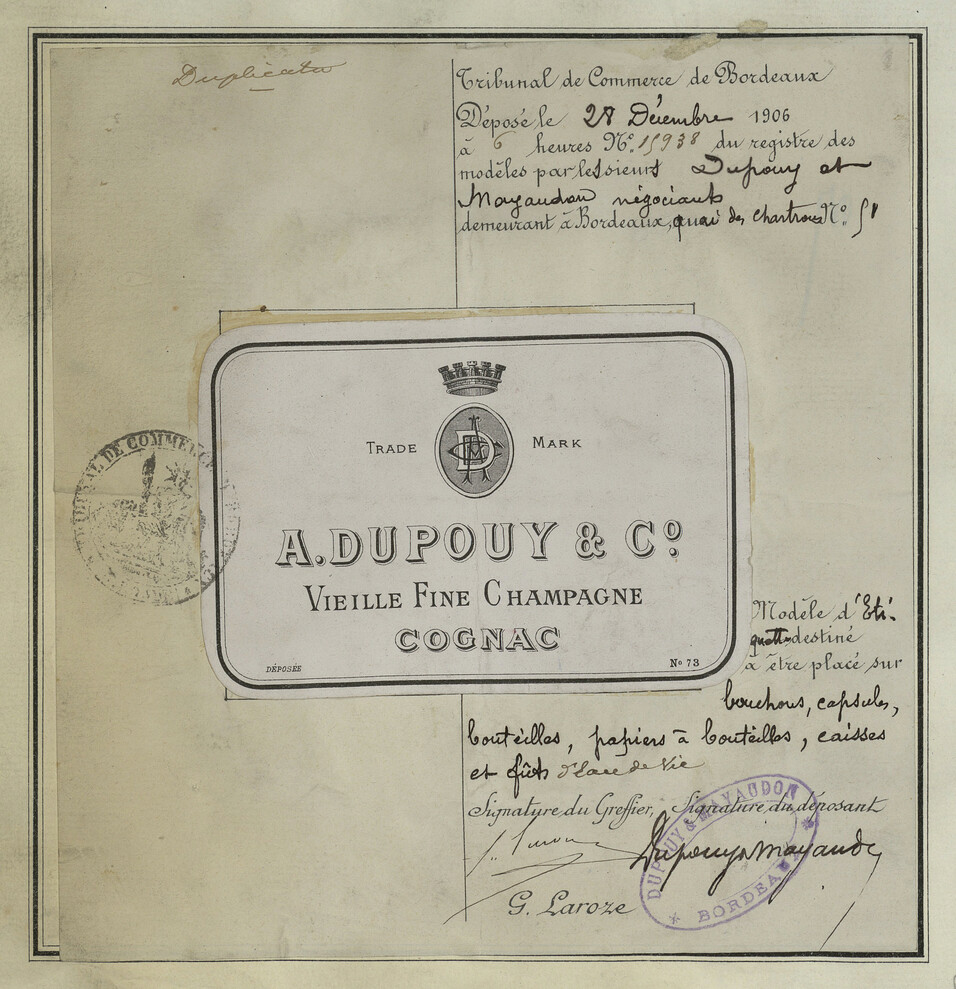 Duplicata
Tribunal de Commerce de Bordeaux
Déposé le 28 Décembre 1906
à 6 heures No. 15938 du registre des
modèles par les sieurs Dupouy et
Mayaudon négociants
demeurant à Bordeaux, quai des Chartrons No. 51
TRADE MARK
A. DUPOUY & Co
VIEILLE FINE CHAMPAGNE
COGNAC
DÉPOSÉE No 73
TRIBUNAL DE COMMERCE
Modèle d'Eti-
quette destiné
à être placé sur
bouchons, capsules,
bouteilles, papiers à bouteilles, caisses
et fûts d'Eau de Vie
Signature du Greffier, Signature du déposant
Dupouy & Mayaudon
G. Laroze
DUPOUY & MAYAUDON
BORDEAUX